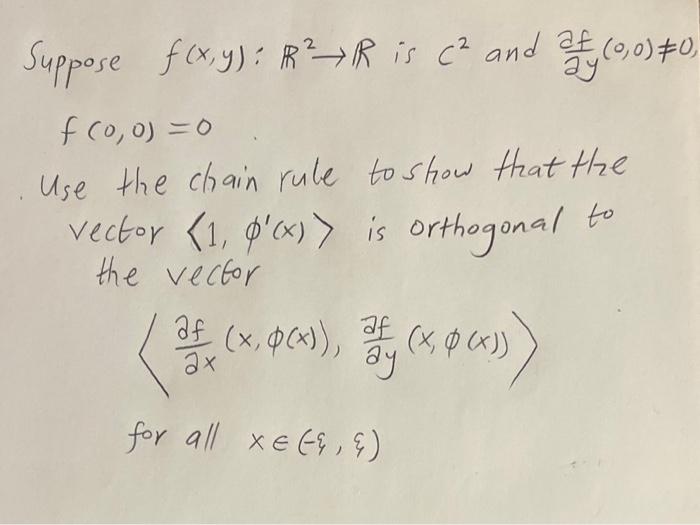 Suppose f(x,y): ℝ²→ℝ is C² and ∂f/∂y (0,0)≠0,
f(0,0)=0
. Use the chain rule to show that the
vector ⟨1, φ'(x)⟩ is orthogonal to
the vector
⟨ ∂f/∂x (x, φ(x)), ∂f/∂y (x, φ(x)) ⟩
for all x ∈ (-ξ, ξ)